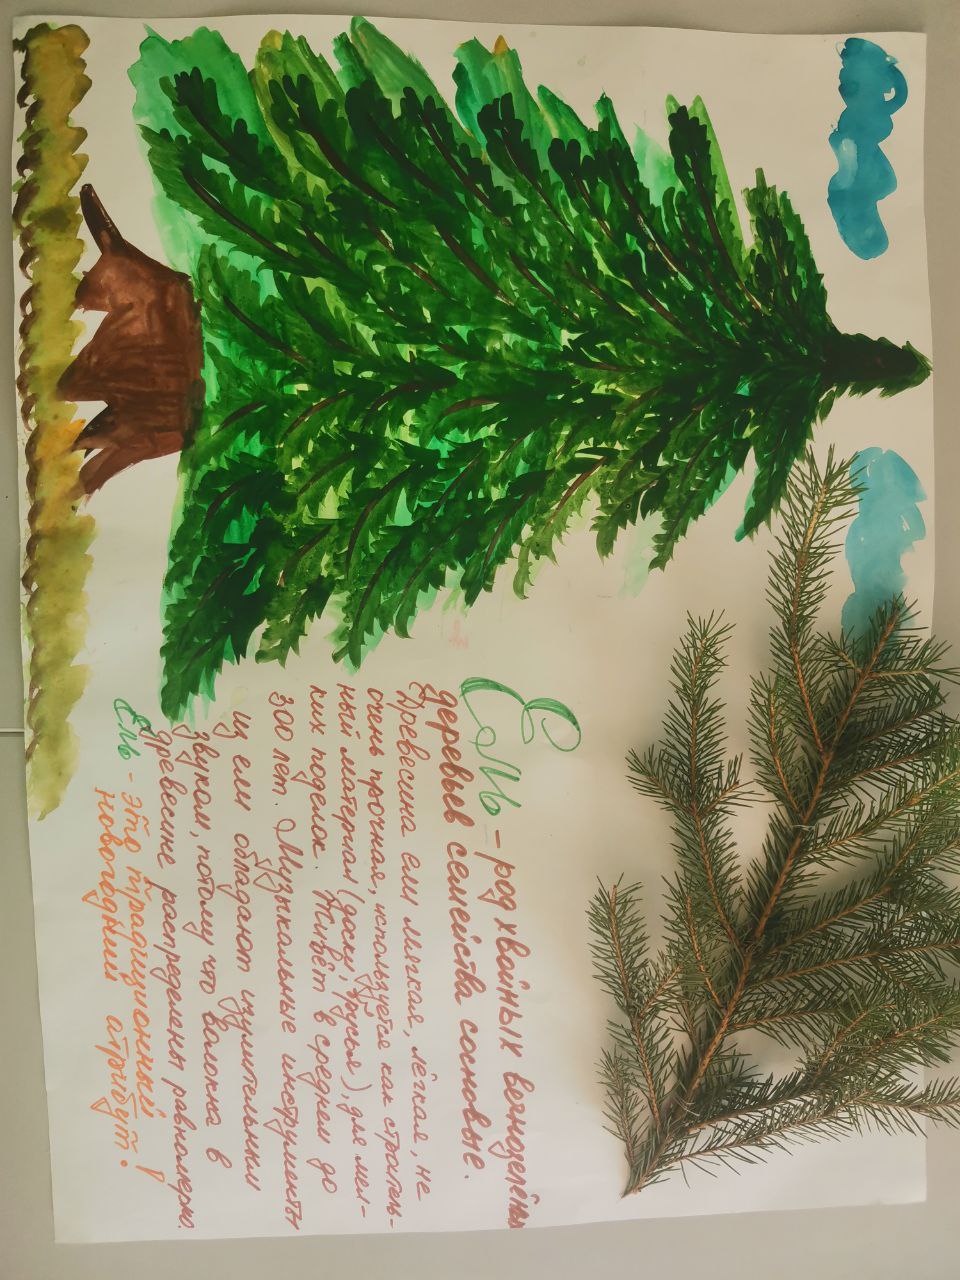 Ель - род хвойных вечнозелёных
деревьев семейства сосновые.
Древесина ели мягкая, лёгкая, не
очень прочная, используется как строитель-
ный материал (доски, брусья), для мел-
ких поделок. Живёт в среднем до
300 лет. Музыкальные инструменты
из ели обладают изумительным
звуком, потому что волокна в
древесине распределены равномерно.
Ель - это традиционный
новогодний атрибут!